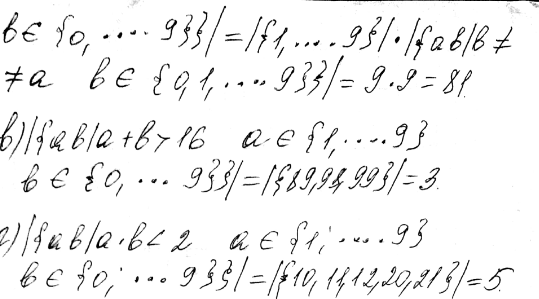 b ∈ {0, .... 9}}| = |{1, .... 9}| · |{ab|b ≠
≠ a b ∈ {0,1, .... 9}}| = 9 · 9 = 81.
в) |{ab|a + b > 16 a ∈ {1, .... 9}
b ∈ {0, ... 9}}| = |{89,98,99}| = 3.
г) |{ab|a · b < 2 a ∈ {1; .... 9}
b ∈ {0; ... 9}}| = |{10, 11,12,20,21}| = 5.